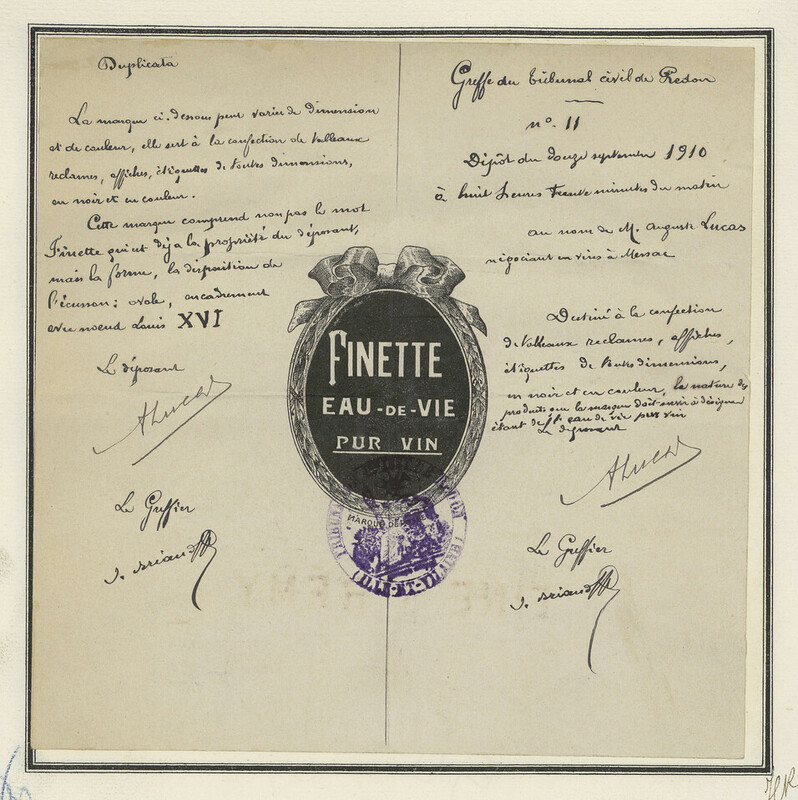 Duplicata
La marque ci-dessous peut varier de dimension
et de couleur, elle sert à la confection de tableaux
reclames, affiches, étiquettes de toutes dimensions,
en noir et en couleur.
Cette marque comprend non pas le mot
Finette qui est déja la propriété du déposant,
mais la forme, la disposition de
l'écusson: ovale, encadrement
avec noeud Louis XVI
Le déposant
ALucas
Le Greffier
J. Briand
Greffe du tribunal civil de Redon
n°. 11
Dépôt du douze septembre 1910
à huit heures trente minutes du matin
au nom de M. Auguste Lucas
négociant en vins à Messac
Destiné à la confection
de tableaux reclames, affiches,
étiquettes de toutes dimensions,
en noir et en couleur, la nature des
produits que la marque doit servir à désigner
étant de l'eau de vie pur vin
Le déposant
ALucas
Le Greffier
J. Briand
FINETTE
EAU-DE-VIE
PUR VIN
MARQUE DÉPOSÉE
ILLE-ET-VILAINE